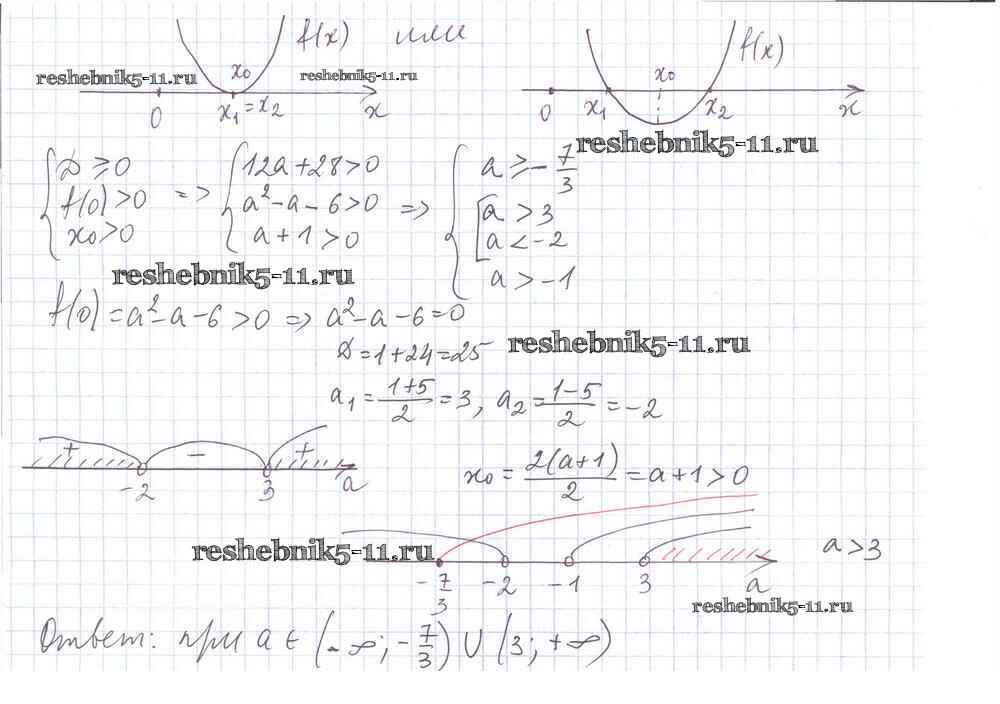 f(x) или f(x)
reshebnik5-11.ru x₀ reshebnik5-11.ru x₀
0 x₁=x₂ x 0 x₁ x₂ x
reshebnik5-11.ru
{ D ≥ 0 => { 12a+28>0 => { a ≥ -7/3
{ f(0)>0 { a²-a-6>0 [ a > 3
[ a < -2
{ x₀>0 { a+1>0 { a > -1
reshebnik5-11.ru
f(0)=a²-a-6>0 => a²-a-6=0
D=1+24=25 reshebnik5-11.ru
a₁ = (1+5)/2 = 3, a₂ = (1-5)/2 = -2
+ - +
-2 3 a
x₀ = 2(a+1)/2 = a+1>0
reshebnik5-11.ru
-7/3 -2 -1 3 a
a>3
reshebnik5-11.ru
Ответ: при a ∈ (-∞; -7/3) ∪ (3; +∞)